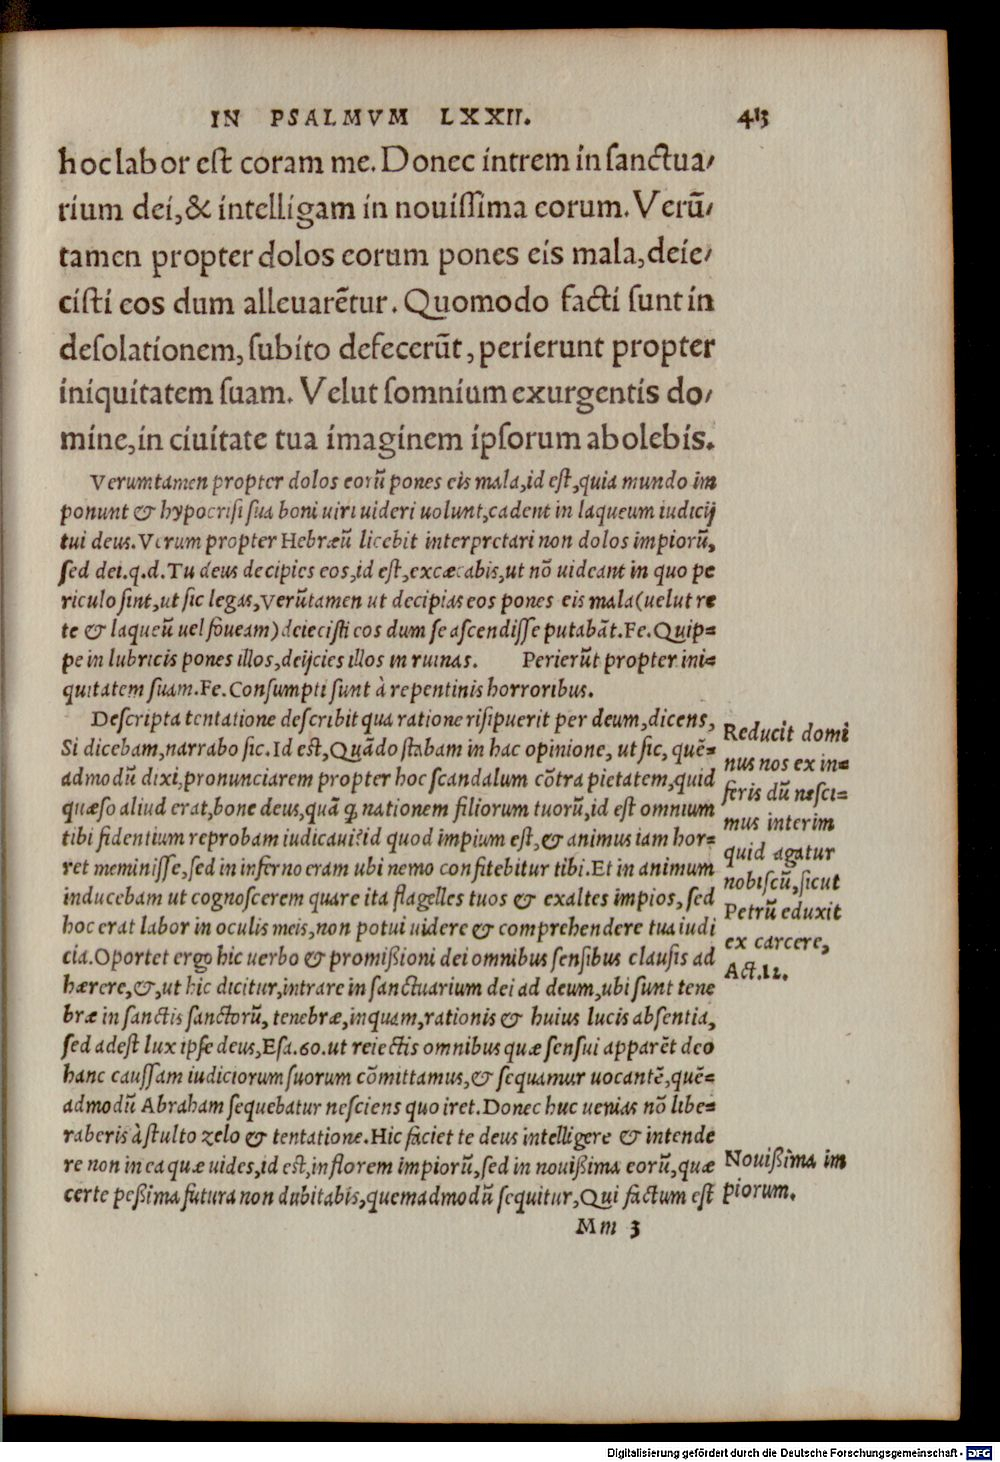 IN PSALMVM LXXII. 413
hoc labor eſt coram me. Donec intrem in ſanctua/
rium dei, & intelligam in nouiſſima eorum. Verū/
tamen propter dolos eorum pones eis mala, deie/
ciſti eos dum alleuarētur. Quomodo facti ſunt in
deſolationem, ſubito defecerūt, perierunt propter
iniquitatem ſuam. Velut ſomnium exurgentis do/
mine, in ciuitate tua imaginem ipſorum abolebis.
Verumtamen propter dolos eorū pones eis mala, id eſt, quia mundo im
ponunt & hypocriſi ſua boni uiri uideri uolunt, cadent in laqueum iudicij
tui deus. Verum propter Hebræū licebit interpretari non dolos impiorū,
ſed dei. q. d. Tu deus decipies eos, id eſt, excæcabis, ut nō uideant in quo pe
riculo ſint, ut ſic legas, Verūtamen ut decipias eos pones eis mala (uelut re
te & laqueū uel foueam) deieciſti eos dum ſe aſcendiſſe putabāt. Fe. Quip=
pe in lubricis pones illos, deijcies illos in ruinas. Perierūt propter ini=
quitatem ſuam. Fe. Conſumpti ſunt à repentinis horroribus.
Deſcripta tentatione deſcribit qua ratione riſipuerit per deum, dicens,
Si dicebam, narrabo ſic. Id eſt, Quādo ſtabam in hac opinione, ut ſic, quē=
admodū dixi, pronunciarem propter hoc ſcandalum cōtra pietatem, quid
quæſo aliud erat, bone deus, quā ꝙ nationem filiorum tuorū, id eſt omnium
tibi fidentium reprobam iudicaui? id quod impium eſt, & animus iam hor=
ret meminiſſe, ſed in inferno eram ubi nemo confitebitur tibi. Et in animum
inducebam ut cognoſcerem quare ita flagelles tuos & exaltes impios, ſed
hoc erat labor in oculis meis, non potui uidere & comprehendere tua iudi
cia. Oportet ergo hic uerbo & promißioni dei omnibus ſenſibus clauſis ad
hærere, &, ut hic dicitur, intrare in ſanctuarium dei ad deum, ubi ſunt tene
bræ in ſanctis ſanctorū, tenebræ, inquam, rationis & huius lucis abſentia,
ſed adeſt lux ipſe deus, Eſa. 60. ut reiectis omnibus quæ ſenſui apparēt deo
hanc cauſſam iudiciorum ſuorum cōmittamus, & ſequamur uocantē, quē=
admodū Abraham ſequebatur neſciens quo iret. Donec huc uenias nō libe=
raberis à ſtulto zelo & tentatione. Hic faciet te deus intelligere & intende
re non in ea quæ uides, id eſt, in florem impiorū, ſed in nouißima eorū, quæ
certe peßima futura non dubitabis, quemadmodū ſequitur, Qui factum eſt
Mm 3
Reducit domi
nus nos ex in=
feris dū neſci=
mus interim
quid agatur
nobiſcū, ſicut
Petrū eduxit
ex carcere,
Act. 12.
Nouißima im
piorum.
Digitalisierung gefördert durch die Deutsche Forschungsgemeinschaft - DFG